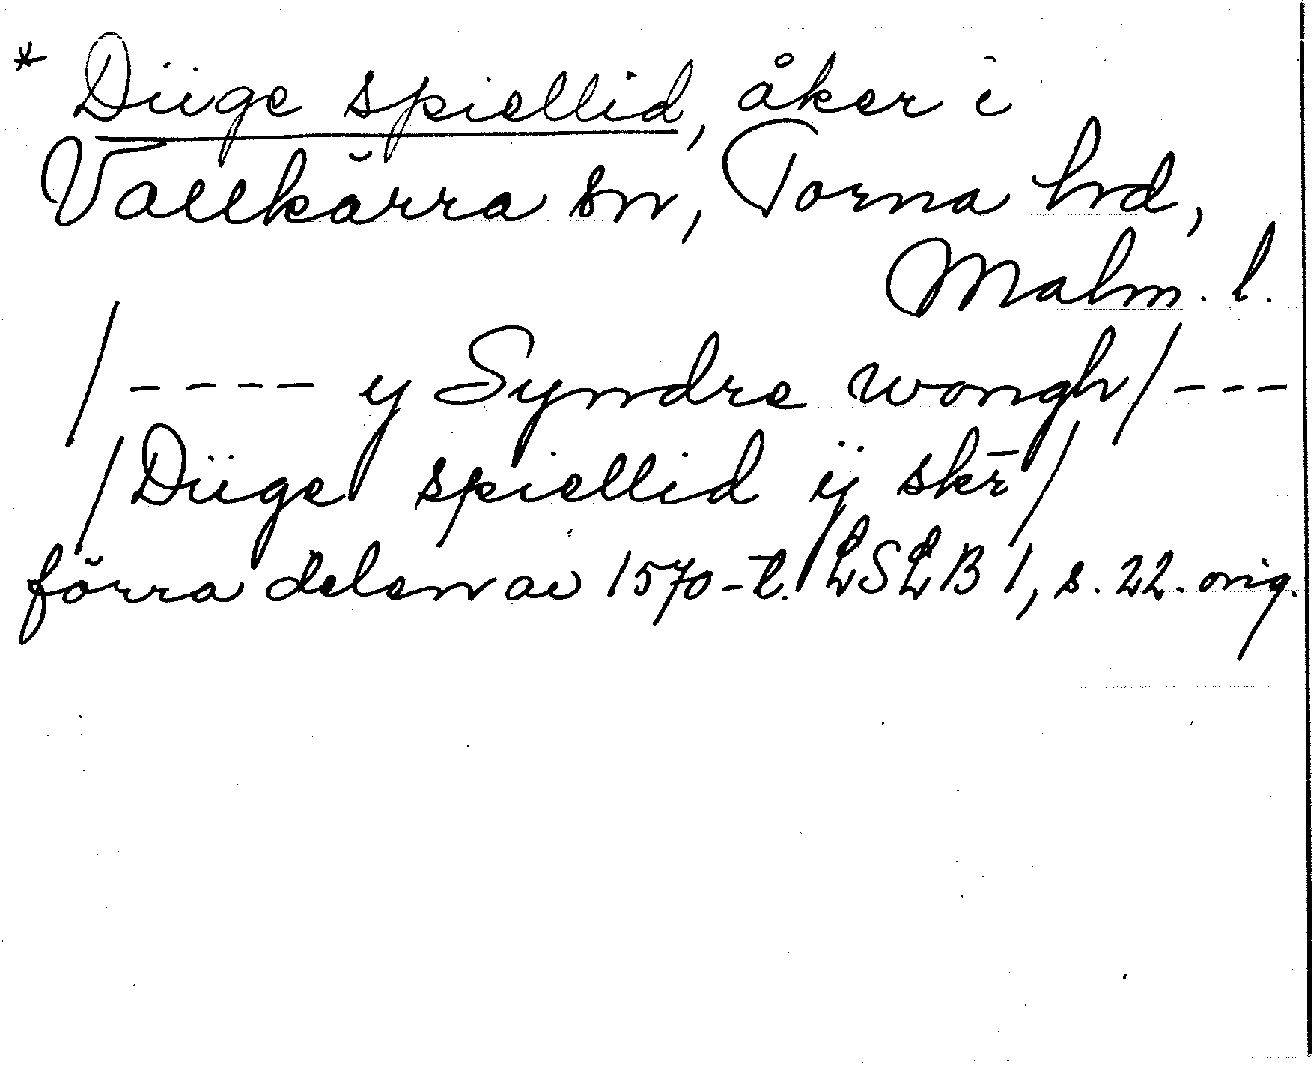 * Diige spiellid, åker i
Vallkärra sn, Torna hrd,
Malm. l.
/---- y Syndre wongh/---
/Diige spiellid ij skr̄/
förra delen av 1570-t. LSLB 1, s. 22. orig.